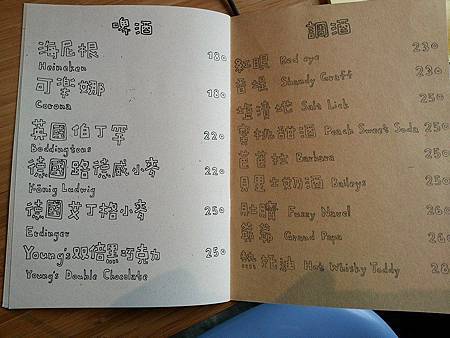 啤酒
海尼根 180
Heineken
可樂娜 180
Corona
英國伯丁罕 220
Boddingtons
德國路德威小麥 220
König Ludwig
德國艾丁格小麥 250
Erdinger
Young's双倍黑巧克力 250
Young's Double Chocolate
調酒
紅眼 Red eye 230
香堤 Shandy Graff 230
鹽漬地 Salt Lick 250
蜜桃甜酒 Peach Sweet Soda 250
芭芭拉 Barbara 250
貝里士奶酒 Baileys 250
肚臍 Fuzzy Navel 260
爺爺 Grand Papa 260
熱托迪 Hot Whisky Toddy 28